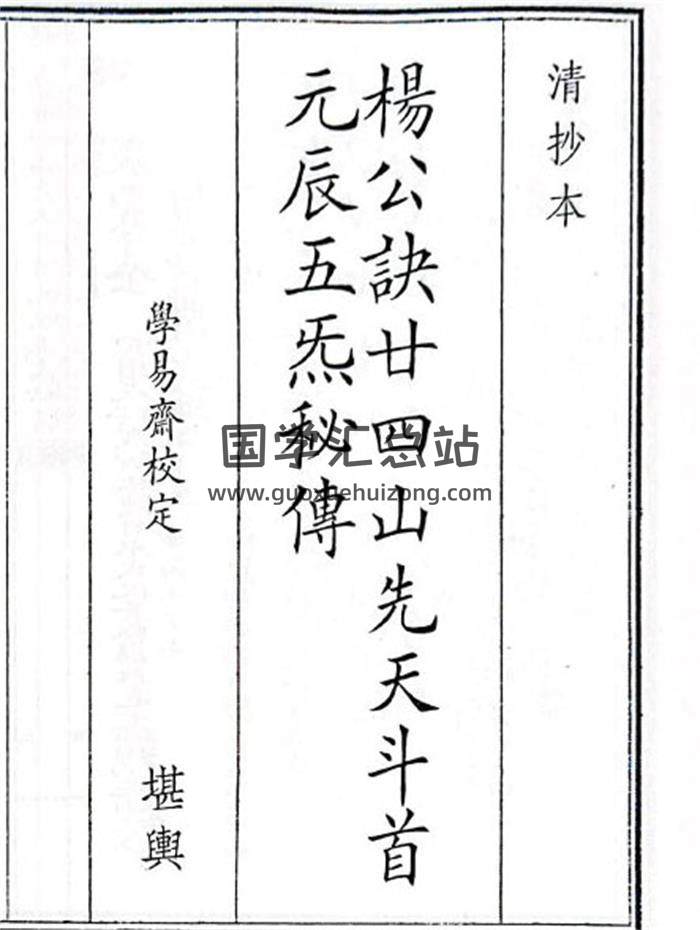 清抄本
楊公訣廿四山先天斗首
元辰五炁秘傳
學易齋校定
堪輿
国学汇总站
www.guoxuehuizong.com